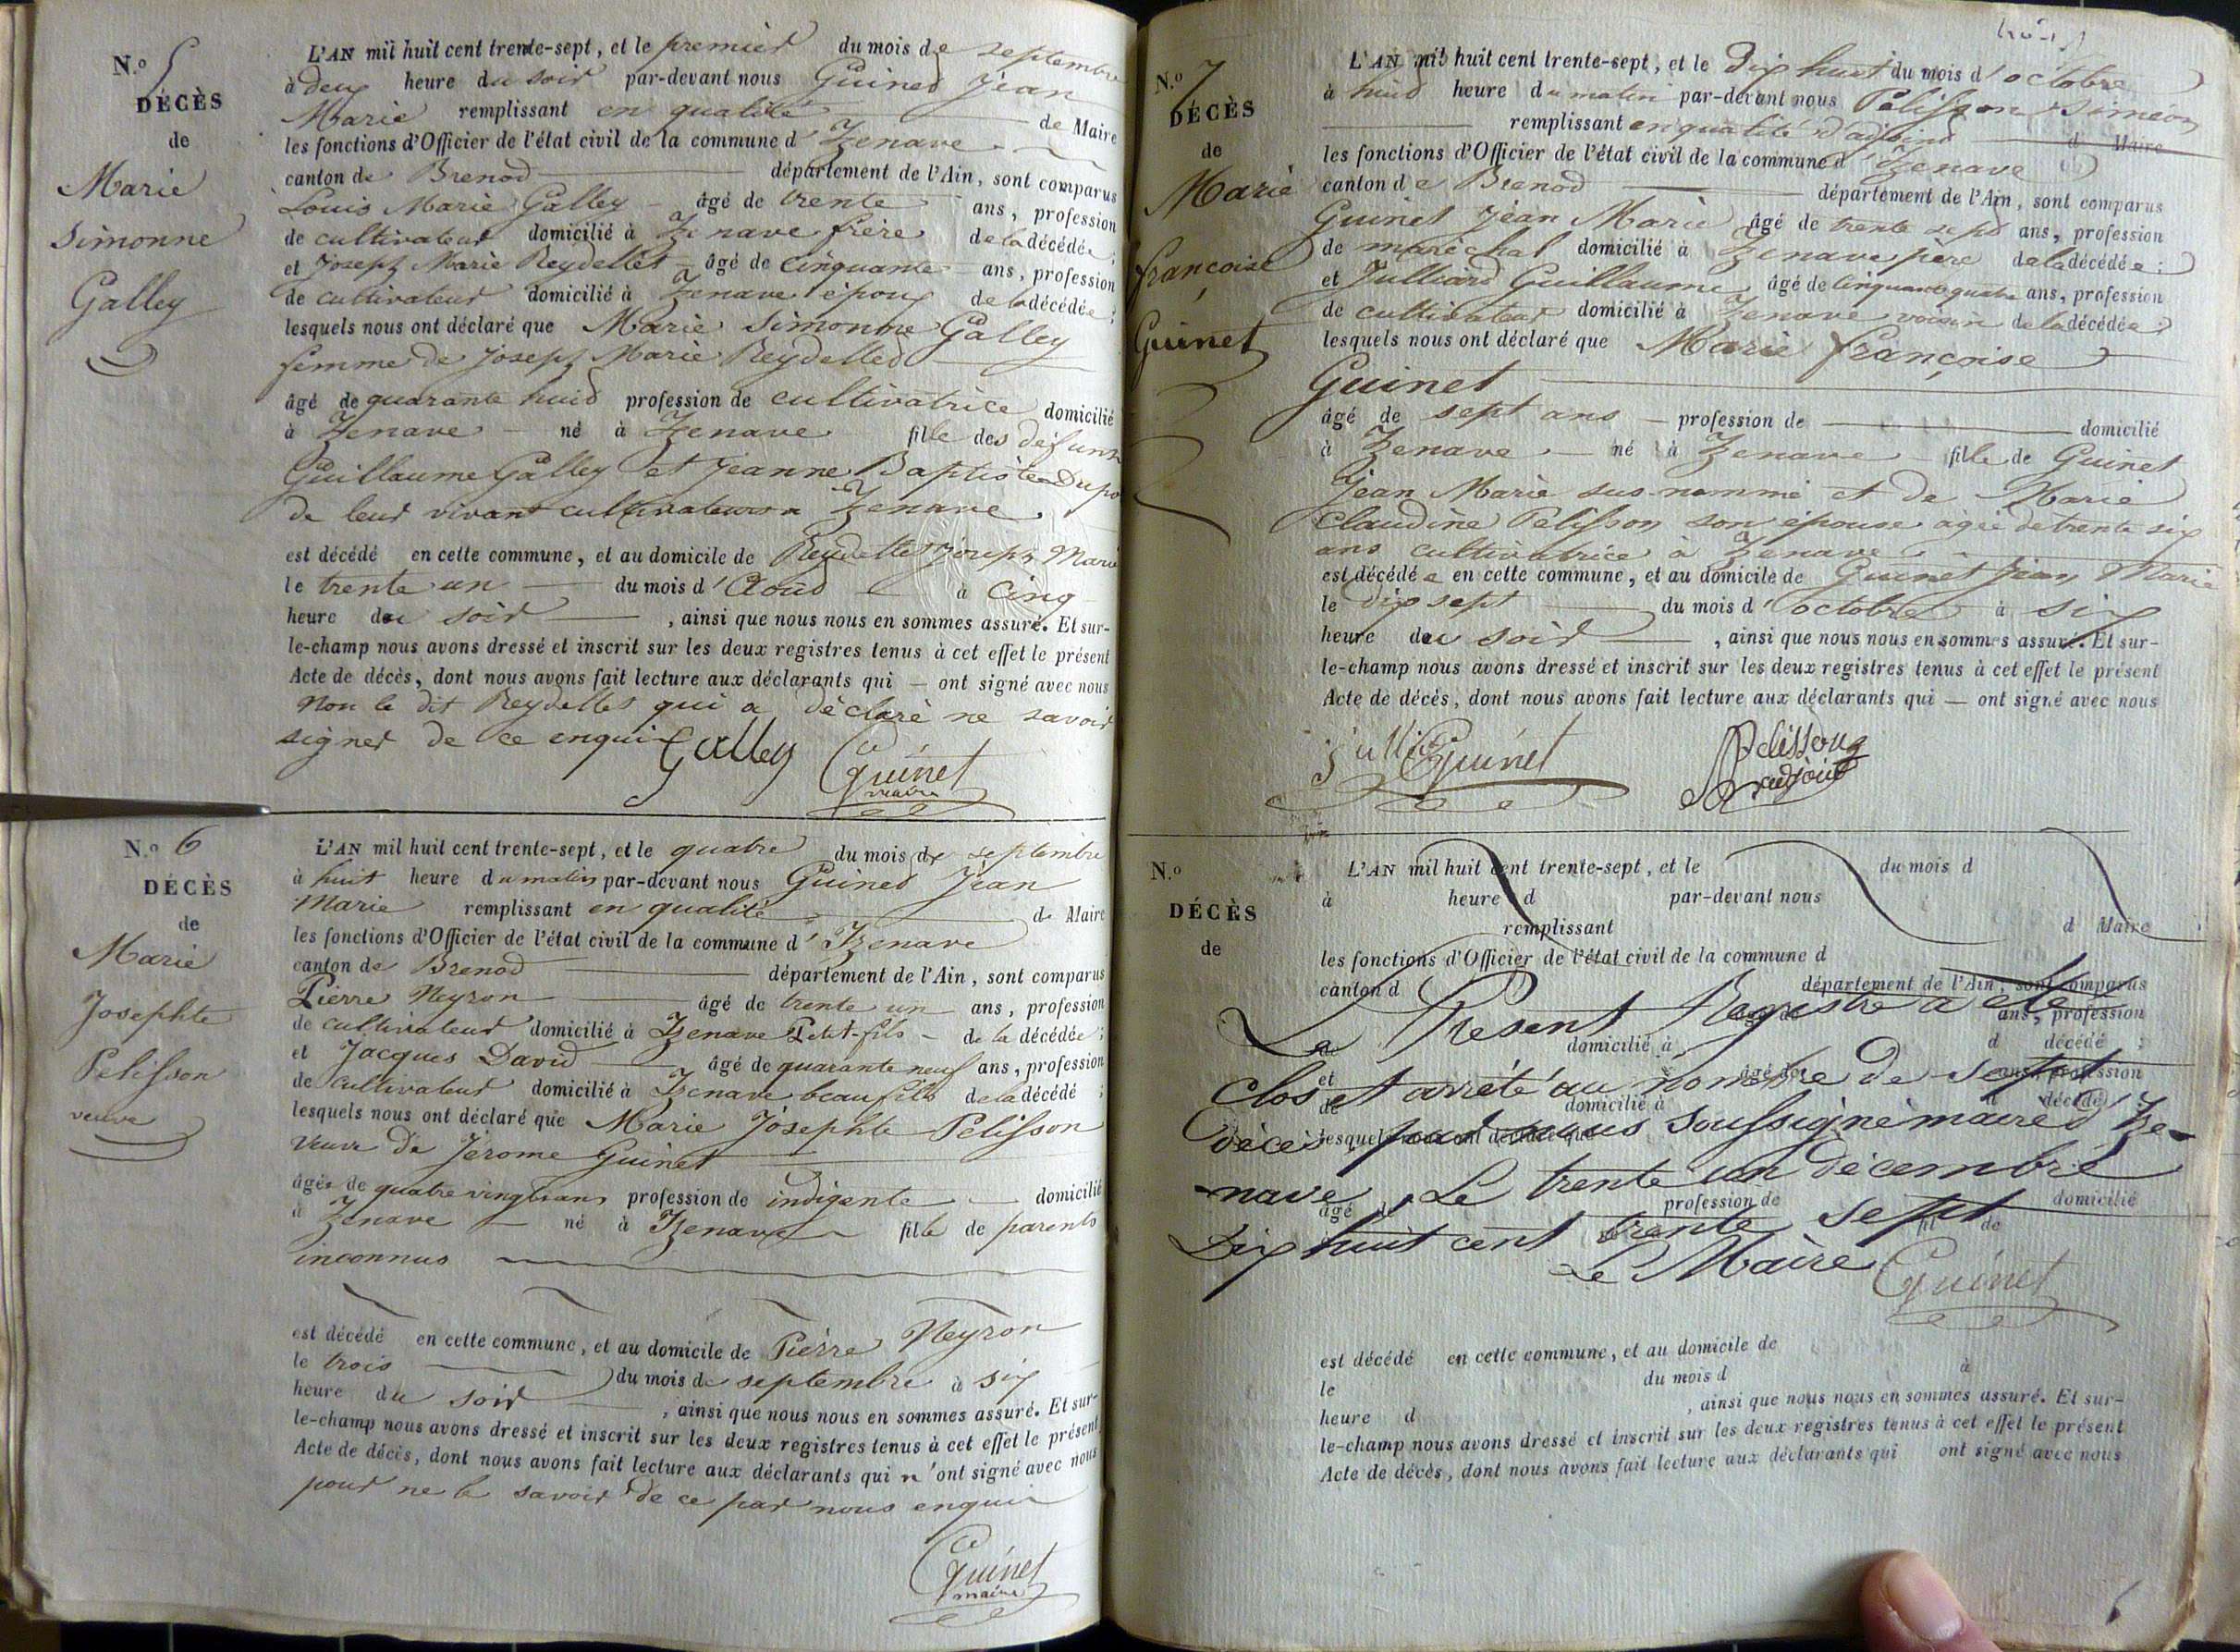 N.o 5
DÉCÈS
de
Marie
Simonne
Galley
L'AN mil huit cent trente-sept, et le premier du mois de septembre
à deux heure du soir par-devant nous Guinet Jean
Marie remplissant en qualité de Maire
les fonctions d'Officier de l'état civil de la commune d'Izenave
canton de Brenod département de l'Ain, sont comparus
Louis Marie Galley âgé de trente ans, profession
de cultivateur domicilié à Izenave frère de la décédée;
et Joseph Marie Reydellet âgé de cinquante ans, profession
de cultivateur domicilié à Izenave époux de la décédée;
lesquels nous ont déclaré que Marie Simonne Galley
femme de Joseph Marie Reydellet
âgé de quarante huit profession de cultivatrice domicilié
à Izenave né à Izenave fille des défunts
Guillaume Galley et Jeanne Baptiste
de leur vivant cultivateurs à Izenave
est décédé en cette commune, et au domicile de Reydellet Joseph Marie
le trente un du mois d'Aoud à Cinq
heure du soir, ainsi que nous nous en sommes assuré. Et sur-
le-champ nous avons dressé et inscrit sur les deux registres tenus à cet effet le présent
Acte de décès, dont nous avons fait lecture aux déclarants qui — ont signé avec nous
Non le dit Reydellet qui a déclaré ne savoir
signer de ce enquis
Galley Guinet
maire
N.o 6
DÉCÈS
de
Marie
Josephte
Pelisson
veuve
L'AN mil huit cent trente-sept, et le quatre du mois de septembre
à huit heure du matin par-devant nous Guinet Jean
Marie remplissant en qualité de Maire
les fonctions d'Officier de l'état civil de la commune d'Izenave
canton de Brenod département de l'Ain, sont comparus
Pierre Neyron âgé de trente un ans, profession
de cultivateur domicilié à Izenave Petit-fils de la décédée;
et Jacques David âgé de quarante neuf ans, profession
de cultivateur domicilié à Izenave beau fils de la décédé;
lesquels nous ont déclaré que Marie Josephte Pelisson
veuve de Jérome Guinet
âgée de quatre vingts ans profession de indigente domicilié
à Izenave né à Izenave fille de parents
inconnus
est décédé en cette commune, et au domicile de Pierre Neyron
le trois du mois de septembre à six
heure du soir, ainsi que nous nous en sommes assuré. Et sur-
le-champ nous avons dressé et inscrit sur les deux registres tenus à cet effet le présent
Acte de décès, dont nous avons fait lecture aux déclarants qui n'ont signé avec nous
pour ne le savoir de ce par nous enquis
Guinet
maire
N.o 7
DÉCÈS
de
Marie
françoise
Guinet
L'AN mil huit cent trente-sept, et le dix huit du mois d'octobre
à huit heure du matin par-devant nous Pelisson Siméon
remplissant en qualité d'adjoint d Maire
les fonctions d'Officier de l'état civil de la commune d'Izenave
canton de Brenod département de l'Ain, sont comparus
Guinet Jean Marie âgé de trente sept ans, profession
de maréchal domicilié à Izenave père de la décédée;
et Julliard Guillaume âgé de cinquante quatre ans, profession
de cultivateur domicilié à Izenave voisin de la décédée;
lesquels nous ont déclaré que Marie françoise
Guinet
âgé de sept ans profession de domicilié
à Izenave né à Izenave fille de Guinet
Jean Marie sus-nommé et de Marie
Claudine Pelisson son épouse agée de trente six
ans cultivatrice à Izenave
est décédée en cette commune, et au domicile de Guinet Jean Marie
le dix sept du mois d'octobre à six
heure du soir, ainsi que nous nous en sommes assuré. Et sur-
le-champ nous avons dressé et inscrit sur les deux registres tenus à cet effet le présent
Acte de décès, dont nous avons fait lecture aux déclarants qui — ont signé avec nous
Guinet Pelisson
adjoint
N.o
DÉCÈS
de
L'AN mil huit cent trente-sept, et le du mois d
à heure d par-devant nous
remplissant d Maire
les fonctions d'Officier de l'état civil de la commune d
canton d département de l'Ain, sont comparus
Le Présent Registre a été
âgé de ans, profession
de domicilié à d décédé;
Clos et arrété au nombre de Sept
et âgé de ans, profession
de domicilié à d décédé;
décés par nous soussigné maire d'Ize-
lesquels nous ont déclaré que
nave, Le trente un décembre
âgé de profession de domicilié
Dix huit cent trente Sept
fil de
Le Maire Guinet
est décédé en cette commune, et au domicile de
le du mois d à
heure d, ainsi que nous nous en sommes assuré. Et sur-
le-champ nous avons dressé et inscrit sur les deux registres tenus à cet effet le présent
Acte de décès, dont nous avons fait lecture aux déclarants qui ont signé avec nous